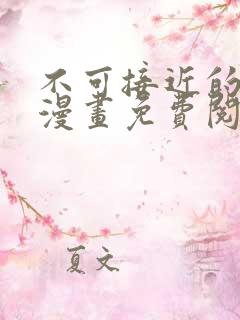 不可接近的
漫畫免費閱
夏文